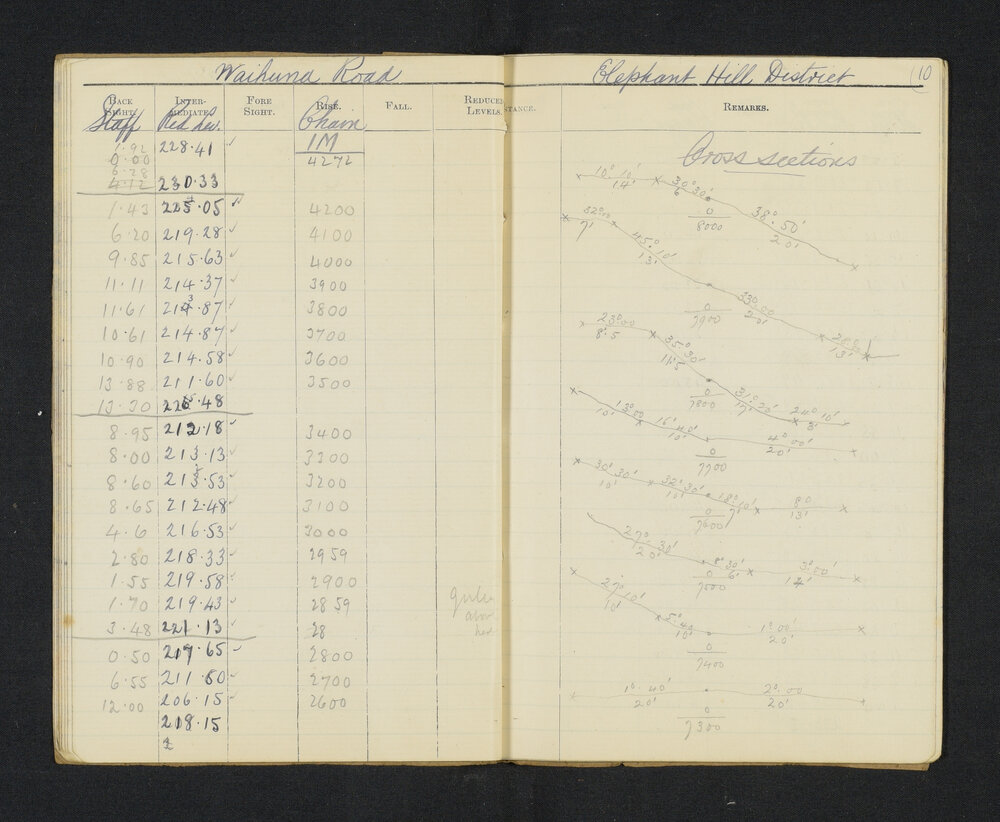 Waihuna Road
Back Sight. Inter-mediate. Fore Sight. Rise. Fall. Reduced Levels.
Staff Red Lev. Chain
1.92 228.41 1M
0.00 4272
6.28
4.12 230.33
1.43 225.05 4200
6.20 219.28 4100
9.85 215.63 4000
11.11 214.37 3900
11.61 213.87 3800
10.61 214.87 3700
10.90 214.58 3600
13.88 211.60 3500
13.30 225.48
8.95 212.18 3400
8.00 213.13 3300
8.60 213.53 3200
8.65 212.48 3100
4.6 216.53 3000
2.80 218.33 2959
1.55 219.58 2900
1.70 219.43 2859
3.48 221.13 28
0.50 217.65 2800
6.55 211.60 2700
12.00 206.15 2600
218.15
Elephant Hill District 10
stance. Remarks.
Cross sections
10° 10' 30° 30' 38° 50'
14' 6 0 20'
8000
32°00 45° 10' 33°00
7' 13' 0 20' 13'
7900
23°00 35° 30' 31° 20' 24° 10'
8.5 11.5 0 8'
7800
13°00 16° 40' 4° 00'
10' 10' 0 20'
7700
30° 30' 32° 30' 18° 10' 80
10' 10' 0 7' 13'
7600
27° 30' 8° 30' 3° 00'
20' 0 6' 14'
7500
27° 10' 5° 40 1° 00'
10' 10' 0 20'
7400
1° 40' 2° 00
20' 0 20'
7300